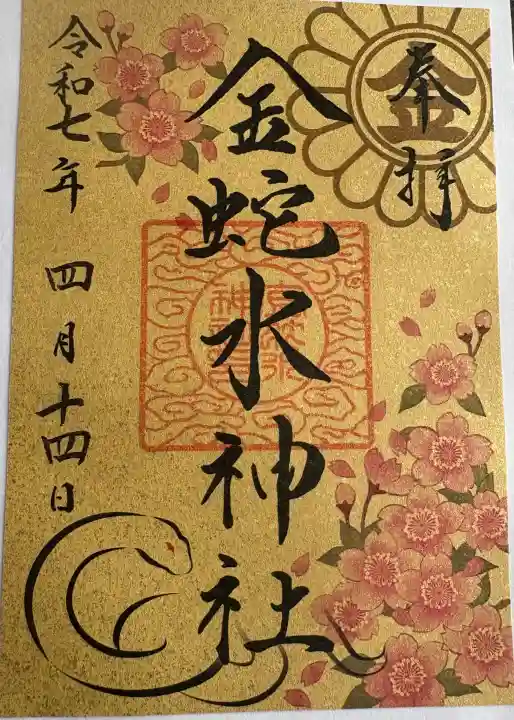 奉拝
金
金蛇水神社
令和七年 四月十四日